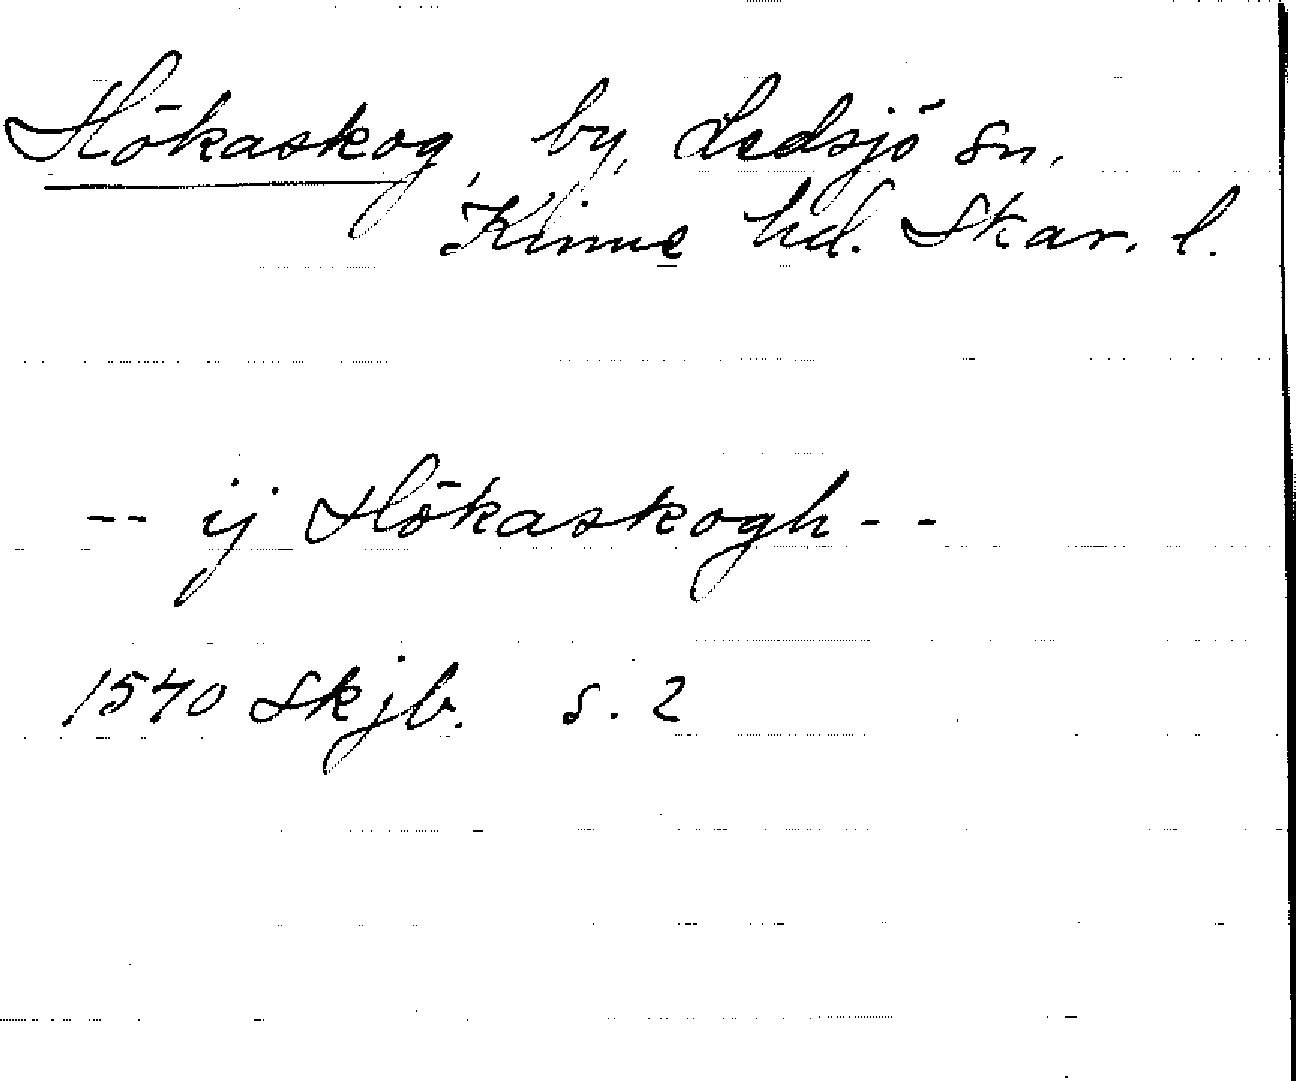 Hökaskog, by, Ledsjö sn,
Kinne hd. Skar. l.
-- ij Hökaskogh --
1540 Skjb. s. 2